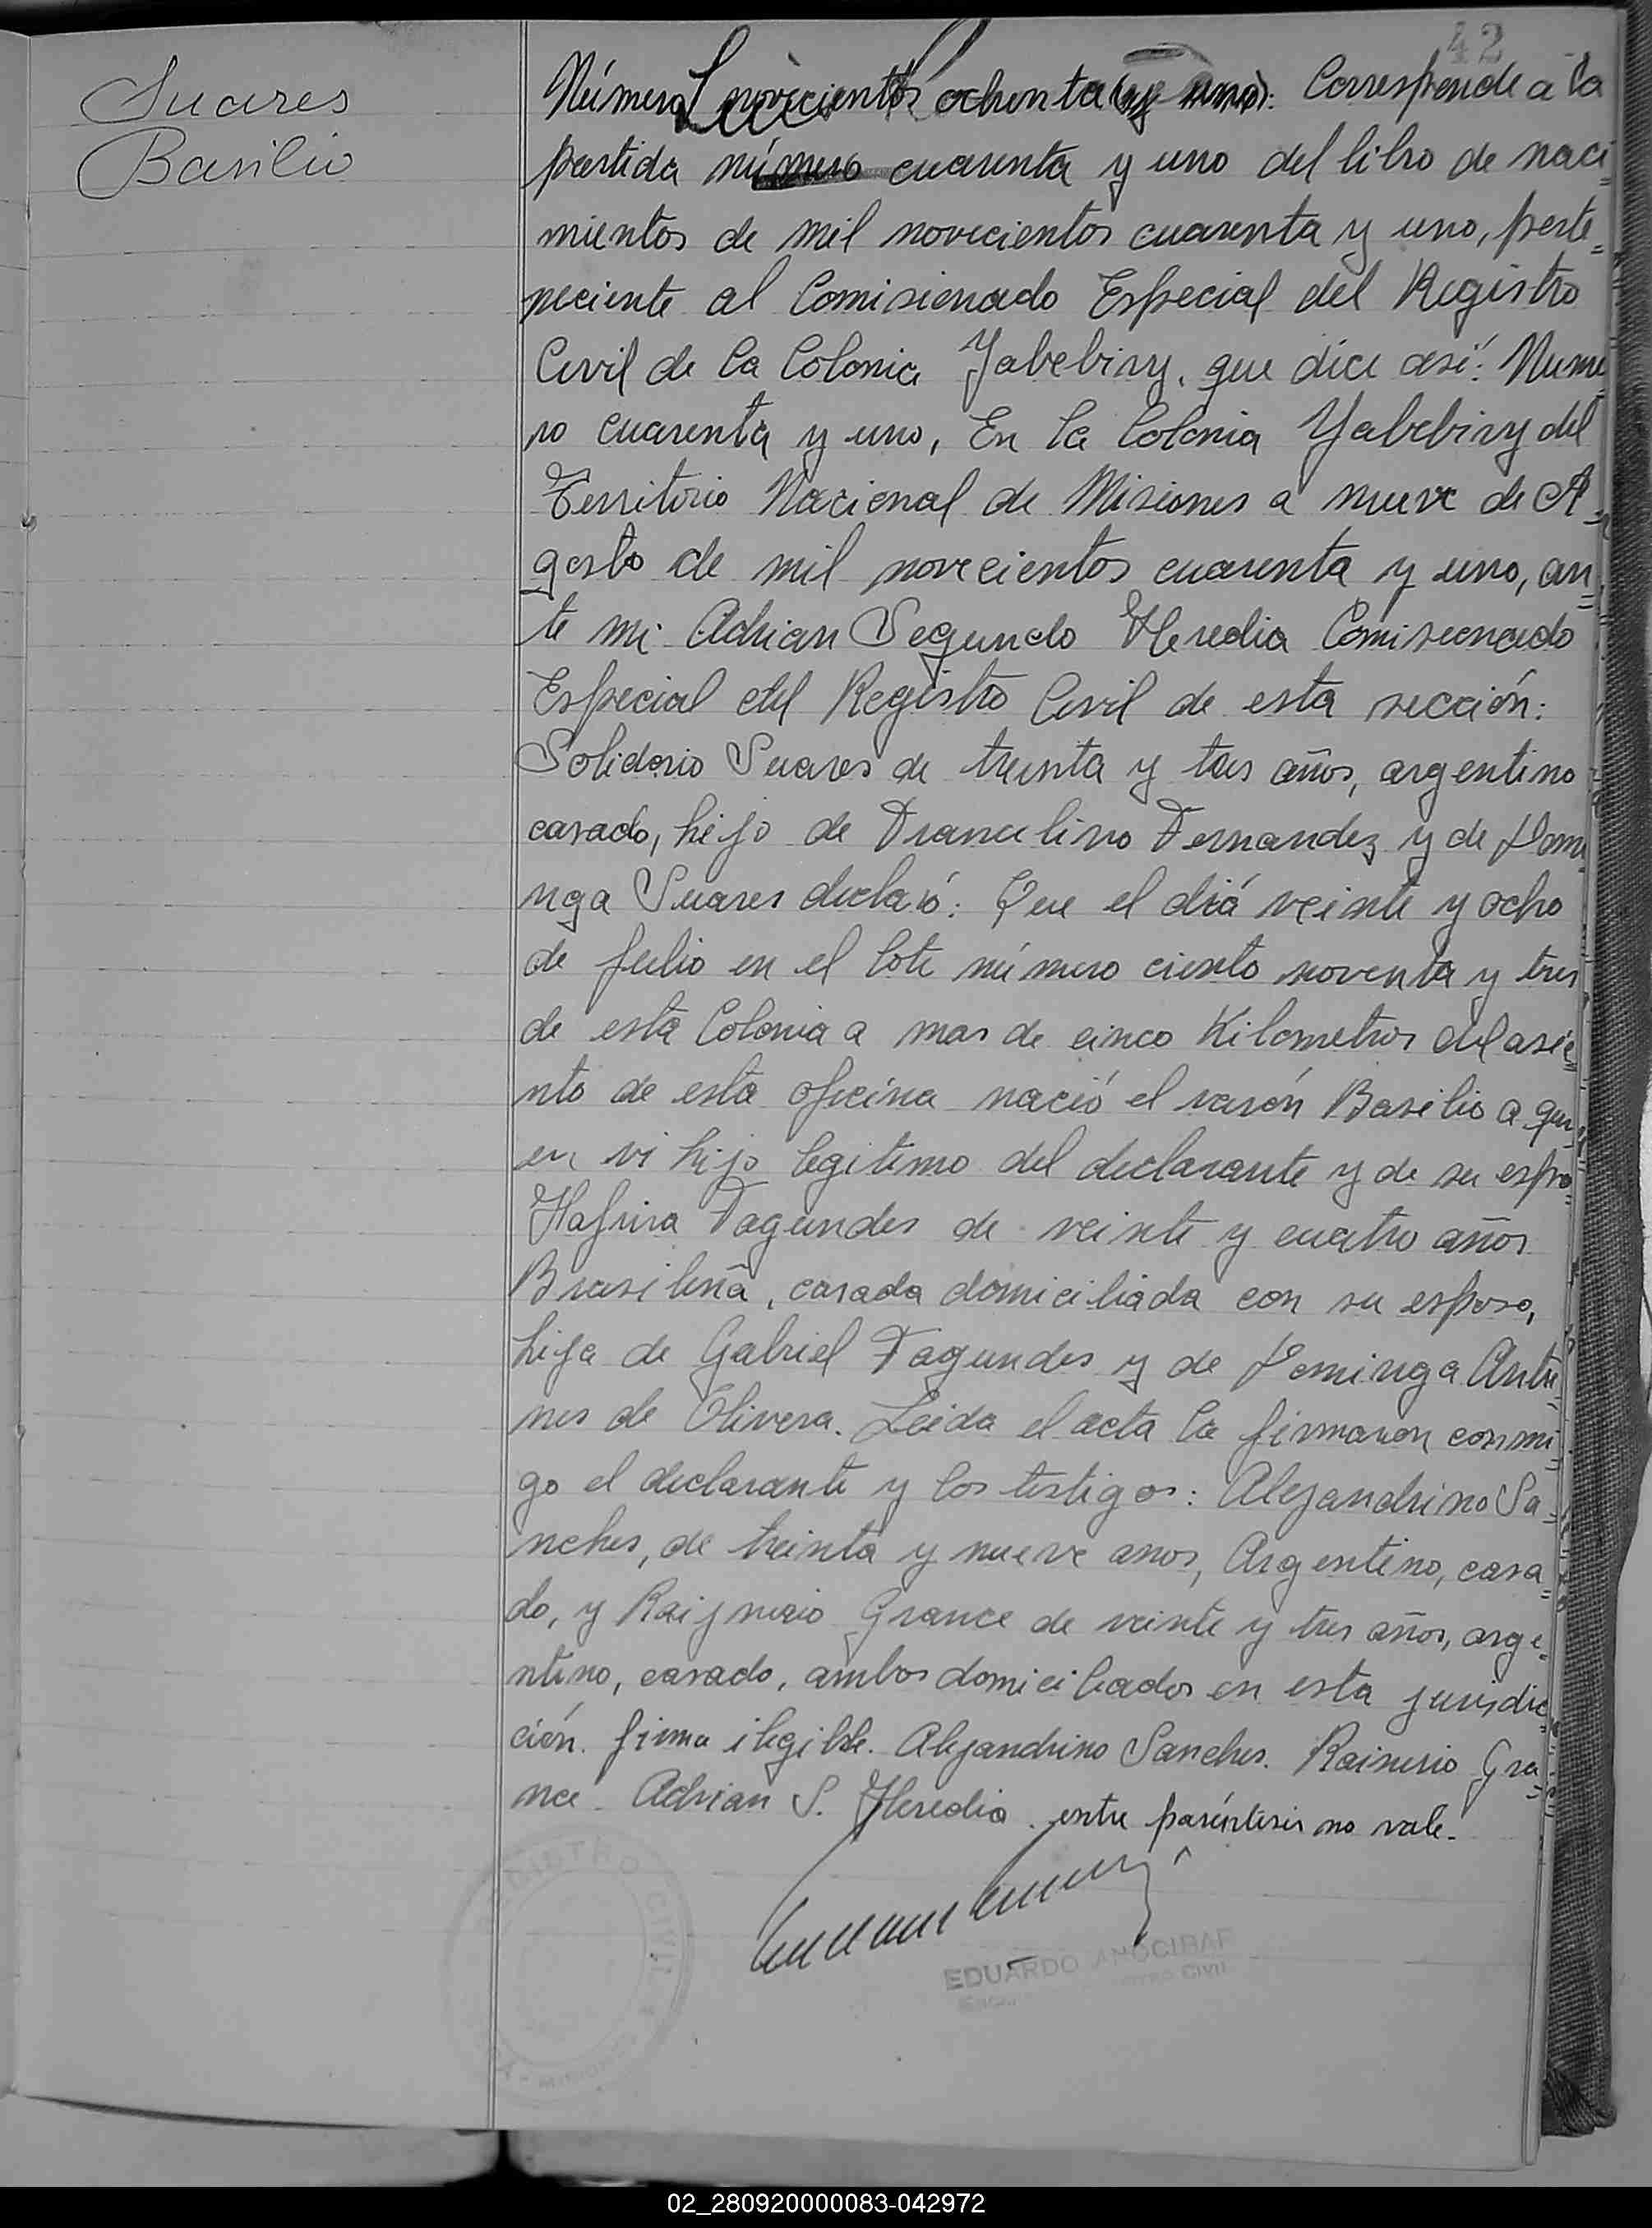 42
Suares
Basilio
Número novecientos ochenta (y uno): Corresponde a la
partida número cuarenta y uno del libro de naci=
mientos de mil novecientos cuarenta y uno, perte=
neciente al Comisionado Especial del Registro
Civil de la Colonia Yabebiry, que dice asi: Nume
ro cuarenta y uno, En la Colonia Yabebiry del
Territorio Nacional de Misiones a nueve de A=
gosto de mil novecientos cuarenta y uno, an=
te mi Adrian Segundo Heredia Comisionado
Especial del Registro Civil de esta sección:
Solidorio Suares de treinta y tres años, argentino
casado, hijo de Franculino Fernandez y de Domi
nga Suares declaró: Que el diá veinte y ocho
de Julio en el lote número ciento noventa y tres
de esta Colonia a mas de cinco Kilometros del asie
nto de esta oficina nació el varón Basilio a qui
en vi hijo legitimo del declarante y de su espo=
Fagundes de veinte y cuatro años
Brasileña, casada domiciliada con su esposo,
hija de Gabriel Fagundes y de Dominga Antu
nes de Olivera. Leida el acta la firmaron conmi=
go el declarante y los testigos: Alejandrino Sa=
nches, de treinta y nueve anos, Argentino, casa=
do, y Grance de veinte y tres años, arge=
ntino, casado, ambos domiciliados en esta jurisdic=
ción. firma ilegible. Alejandrino Sanches. Rainerio Gra=
nce. Adrian S. Heredia. entre paréntesis no vale.
REGISTRO CIVIL
MISIONES
EDUARDO ANOCIBAR
REGISTRO CIVIL
02_280920000083-042972